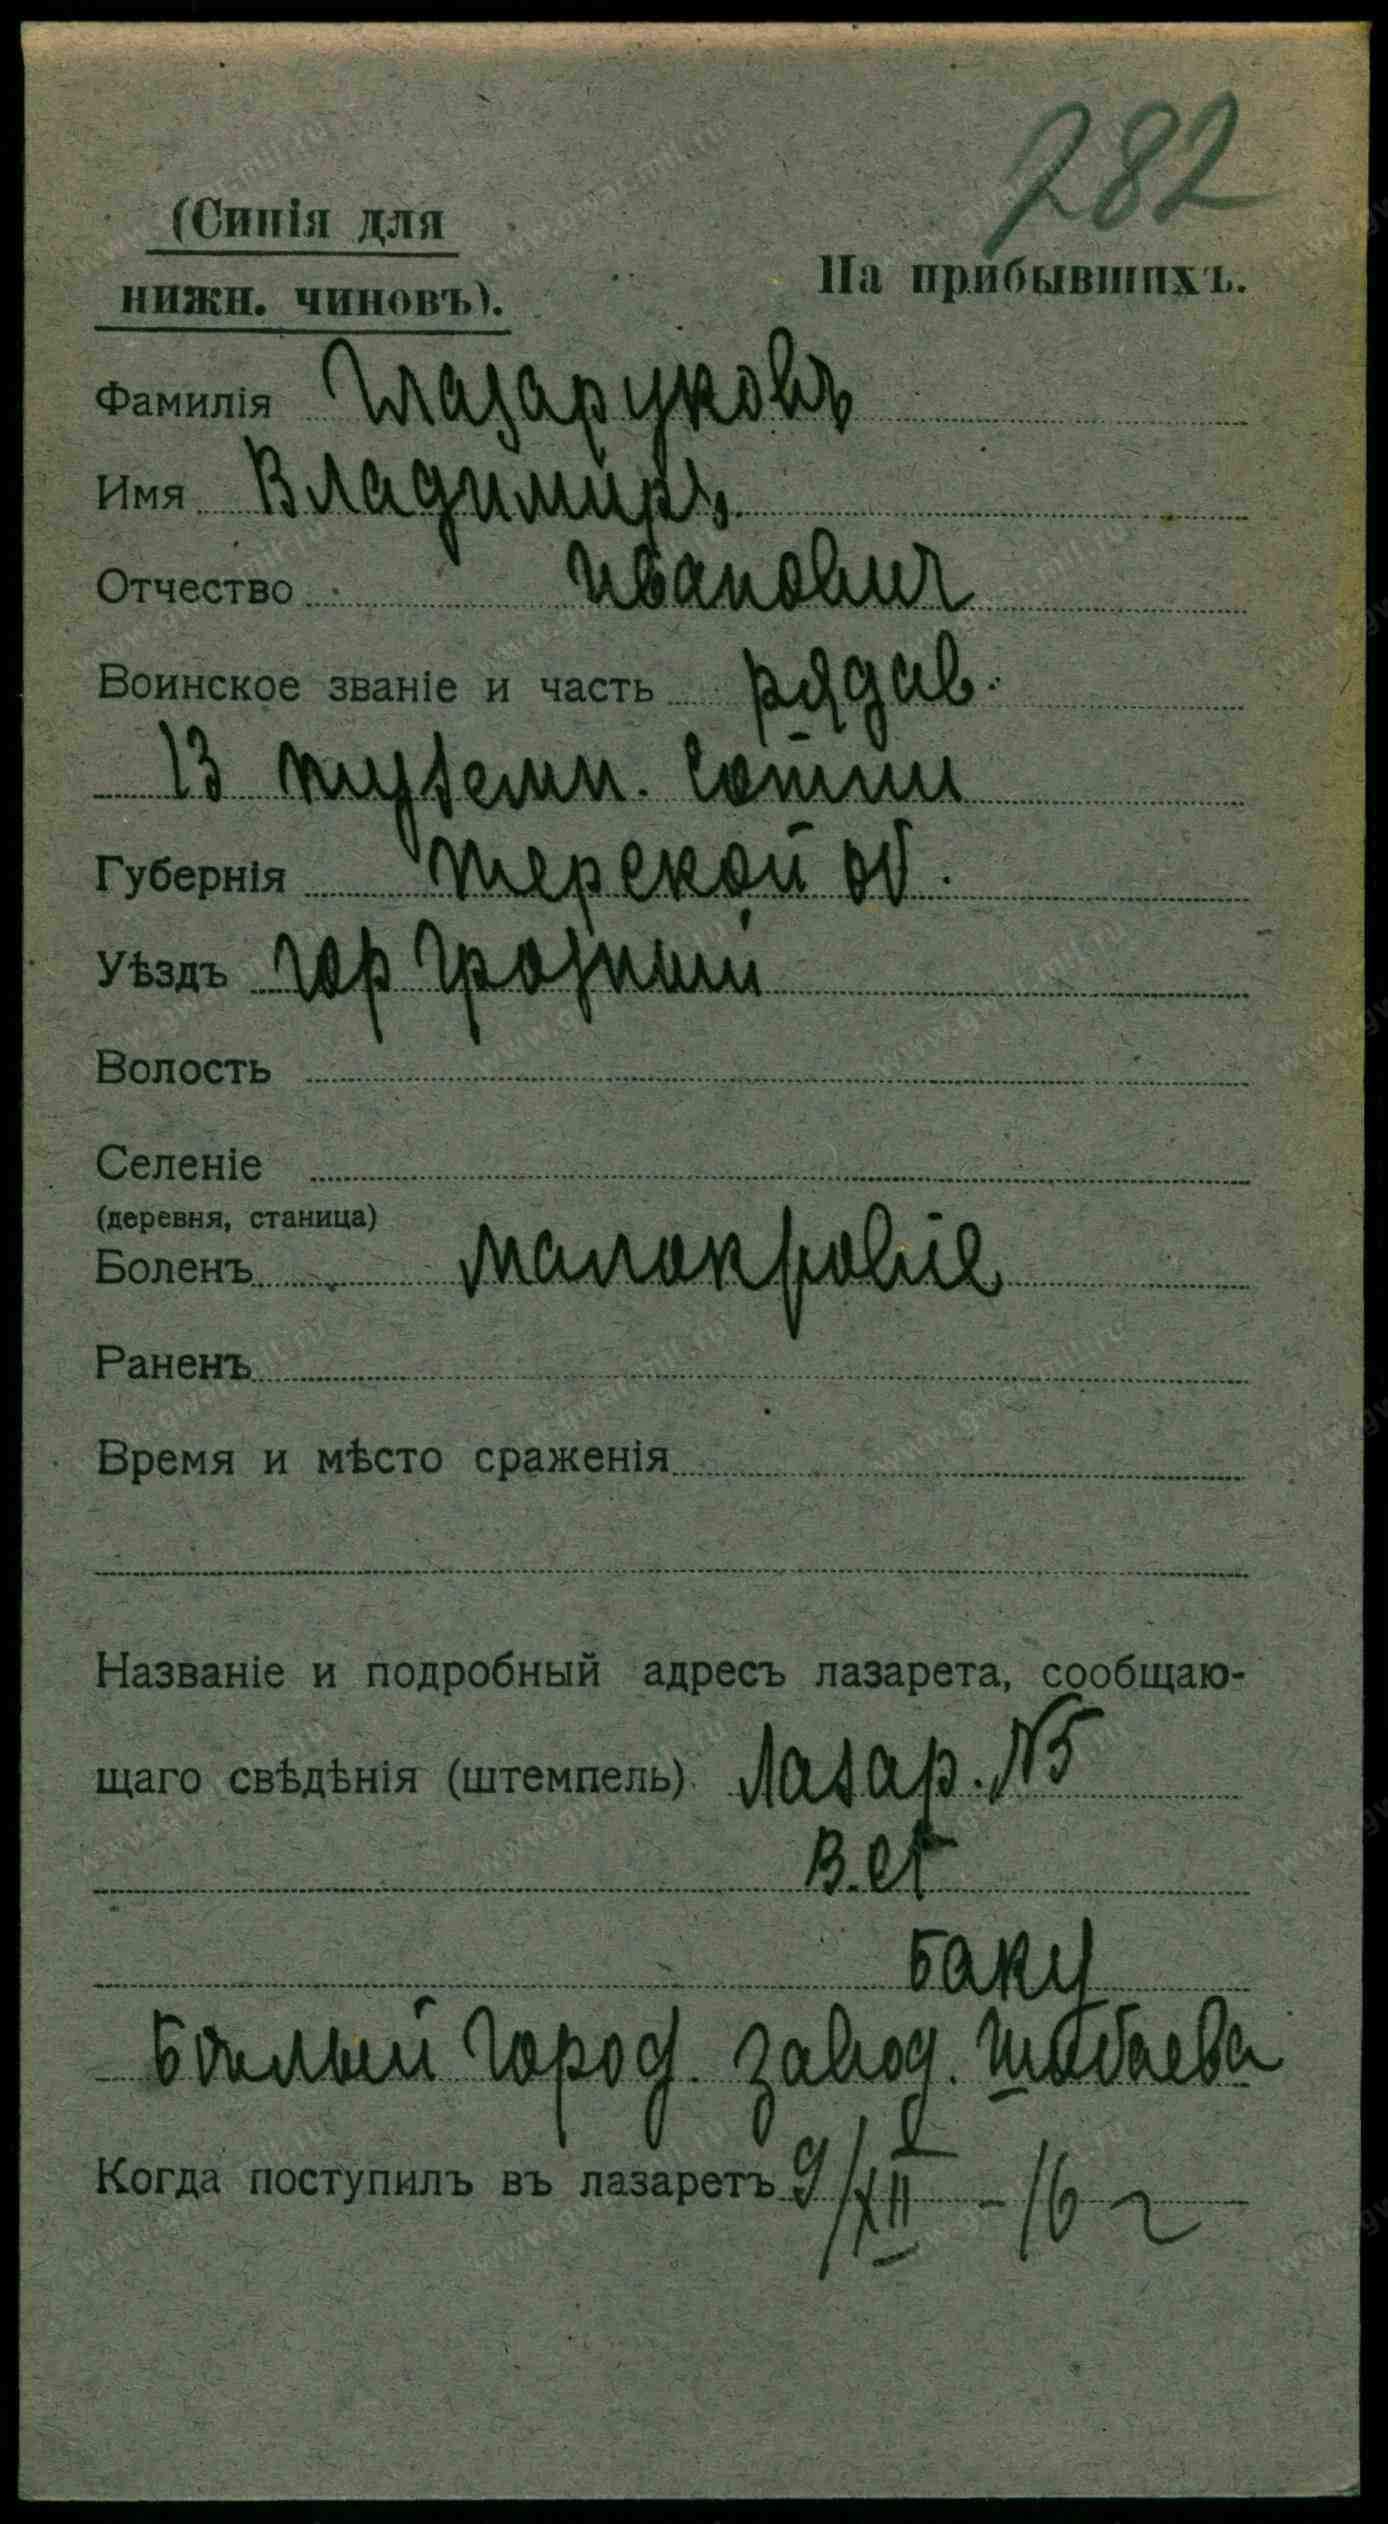 282
(Синія для
нижн. чиновъ).
На прибывшихъ.
Фамилія Глазаруковъ
Имя Владимиръ
Отчество Иванович
Воинское званіе и часть рядов.
13 туземн. сотни
Губернія Терской об.
Уѣздъ гор Грозный
Волость
Селеніе
(деревня, станица)
Боленъ малокровіе
Раненъ
Время и мѣсто сраженія
Названіе и подробный адресъ лазарета, сообщаю-
щаго свѣдѣнія (штемпель) Лазар. №5
Баку
Бѣлый город. завод. Шибаева
Когда поступилъ въ лазаретъ 9/XII - 16 г